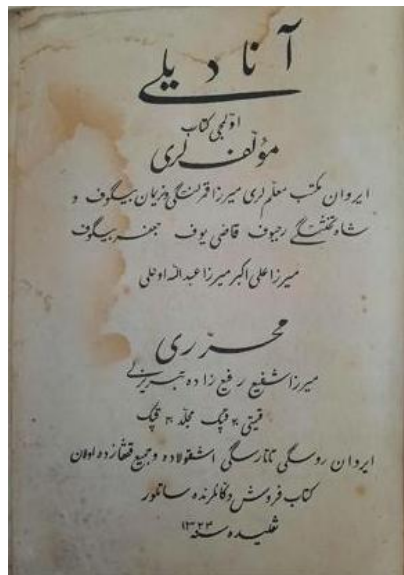 آنا دیلی
اوّلمجی کتاب
مؤلّف لری
ایروان مکتب معلّم لری میرزا قمرلنسکی و نریمان بیگوف و
شاه تختنسکی رجبوف قاضی یوف جعفر بیگوف
میرزا علی اکبر میرزا عبداللّه اوغلی
محرّری
میرزا شفیع رفیع زاده تبریزلی
قیمتی ۲۰ قپک مجلّد ۳۰ قپک
ایروان روسگی تاتارسگی اشقولاده و جمیع قفقازده اولان
کتاب فروش دکانلرنده ساتلور
تفلیسده سنه ۱۳۲۳